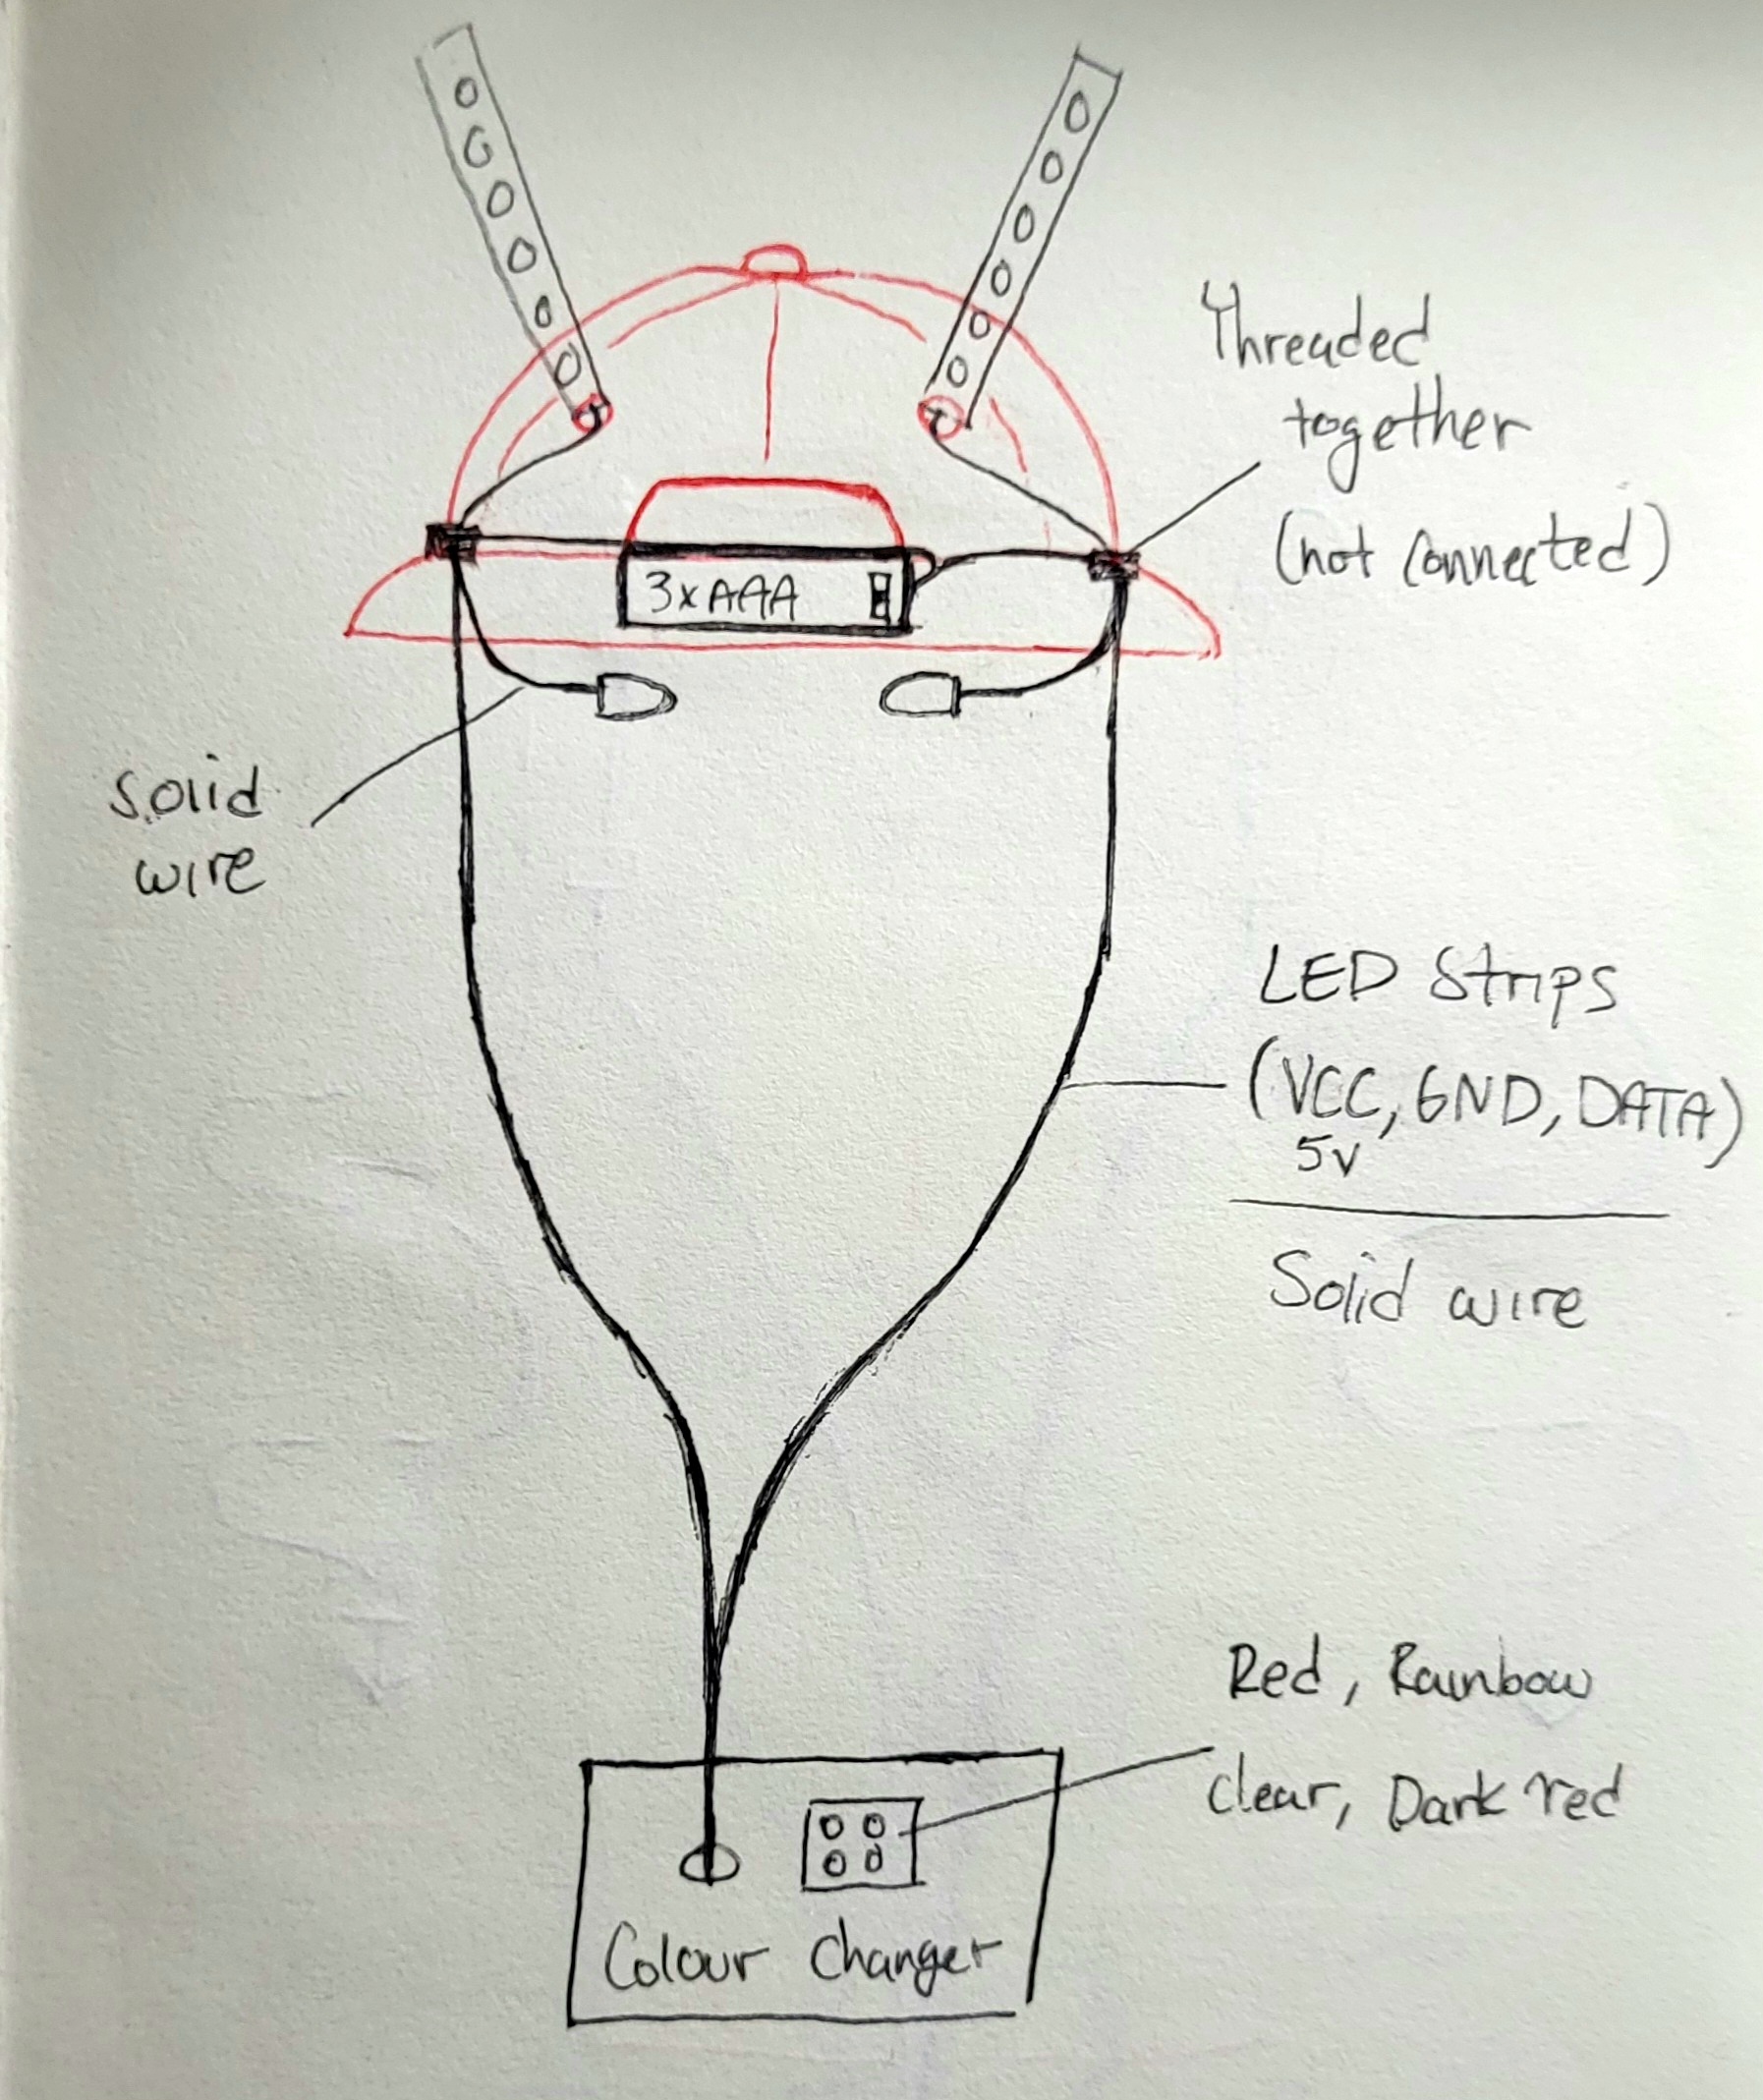 Threaded
together
(not connected)
3xAAA
Solid
wire
LED Strips
(VCC, GND, DATA)
5v
Solid wire
Red, Rainbow
Clear, Dark red
Colour Changer